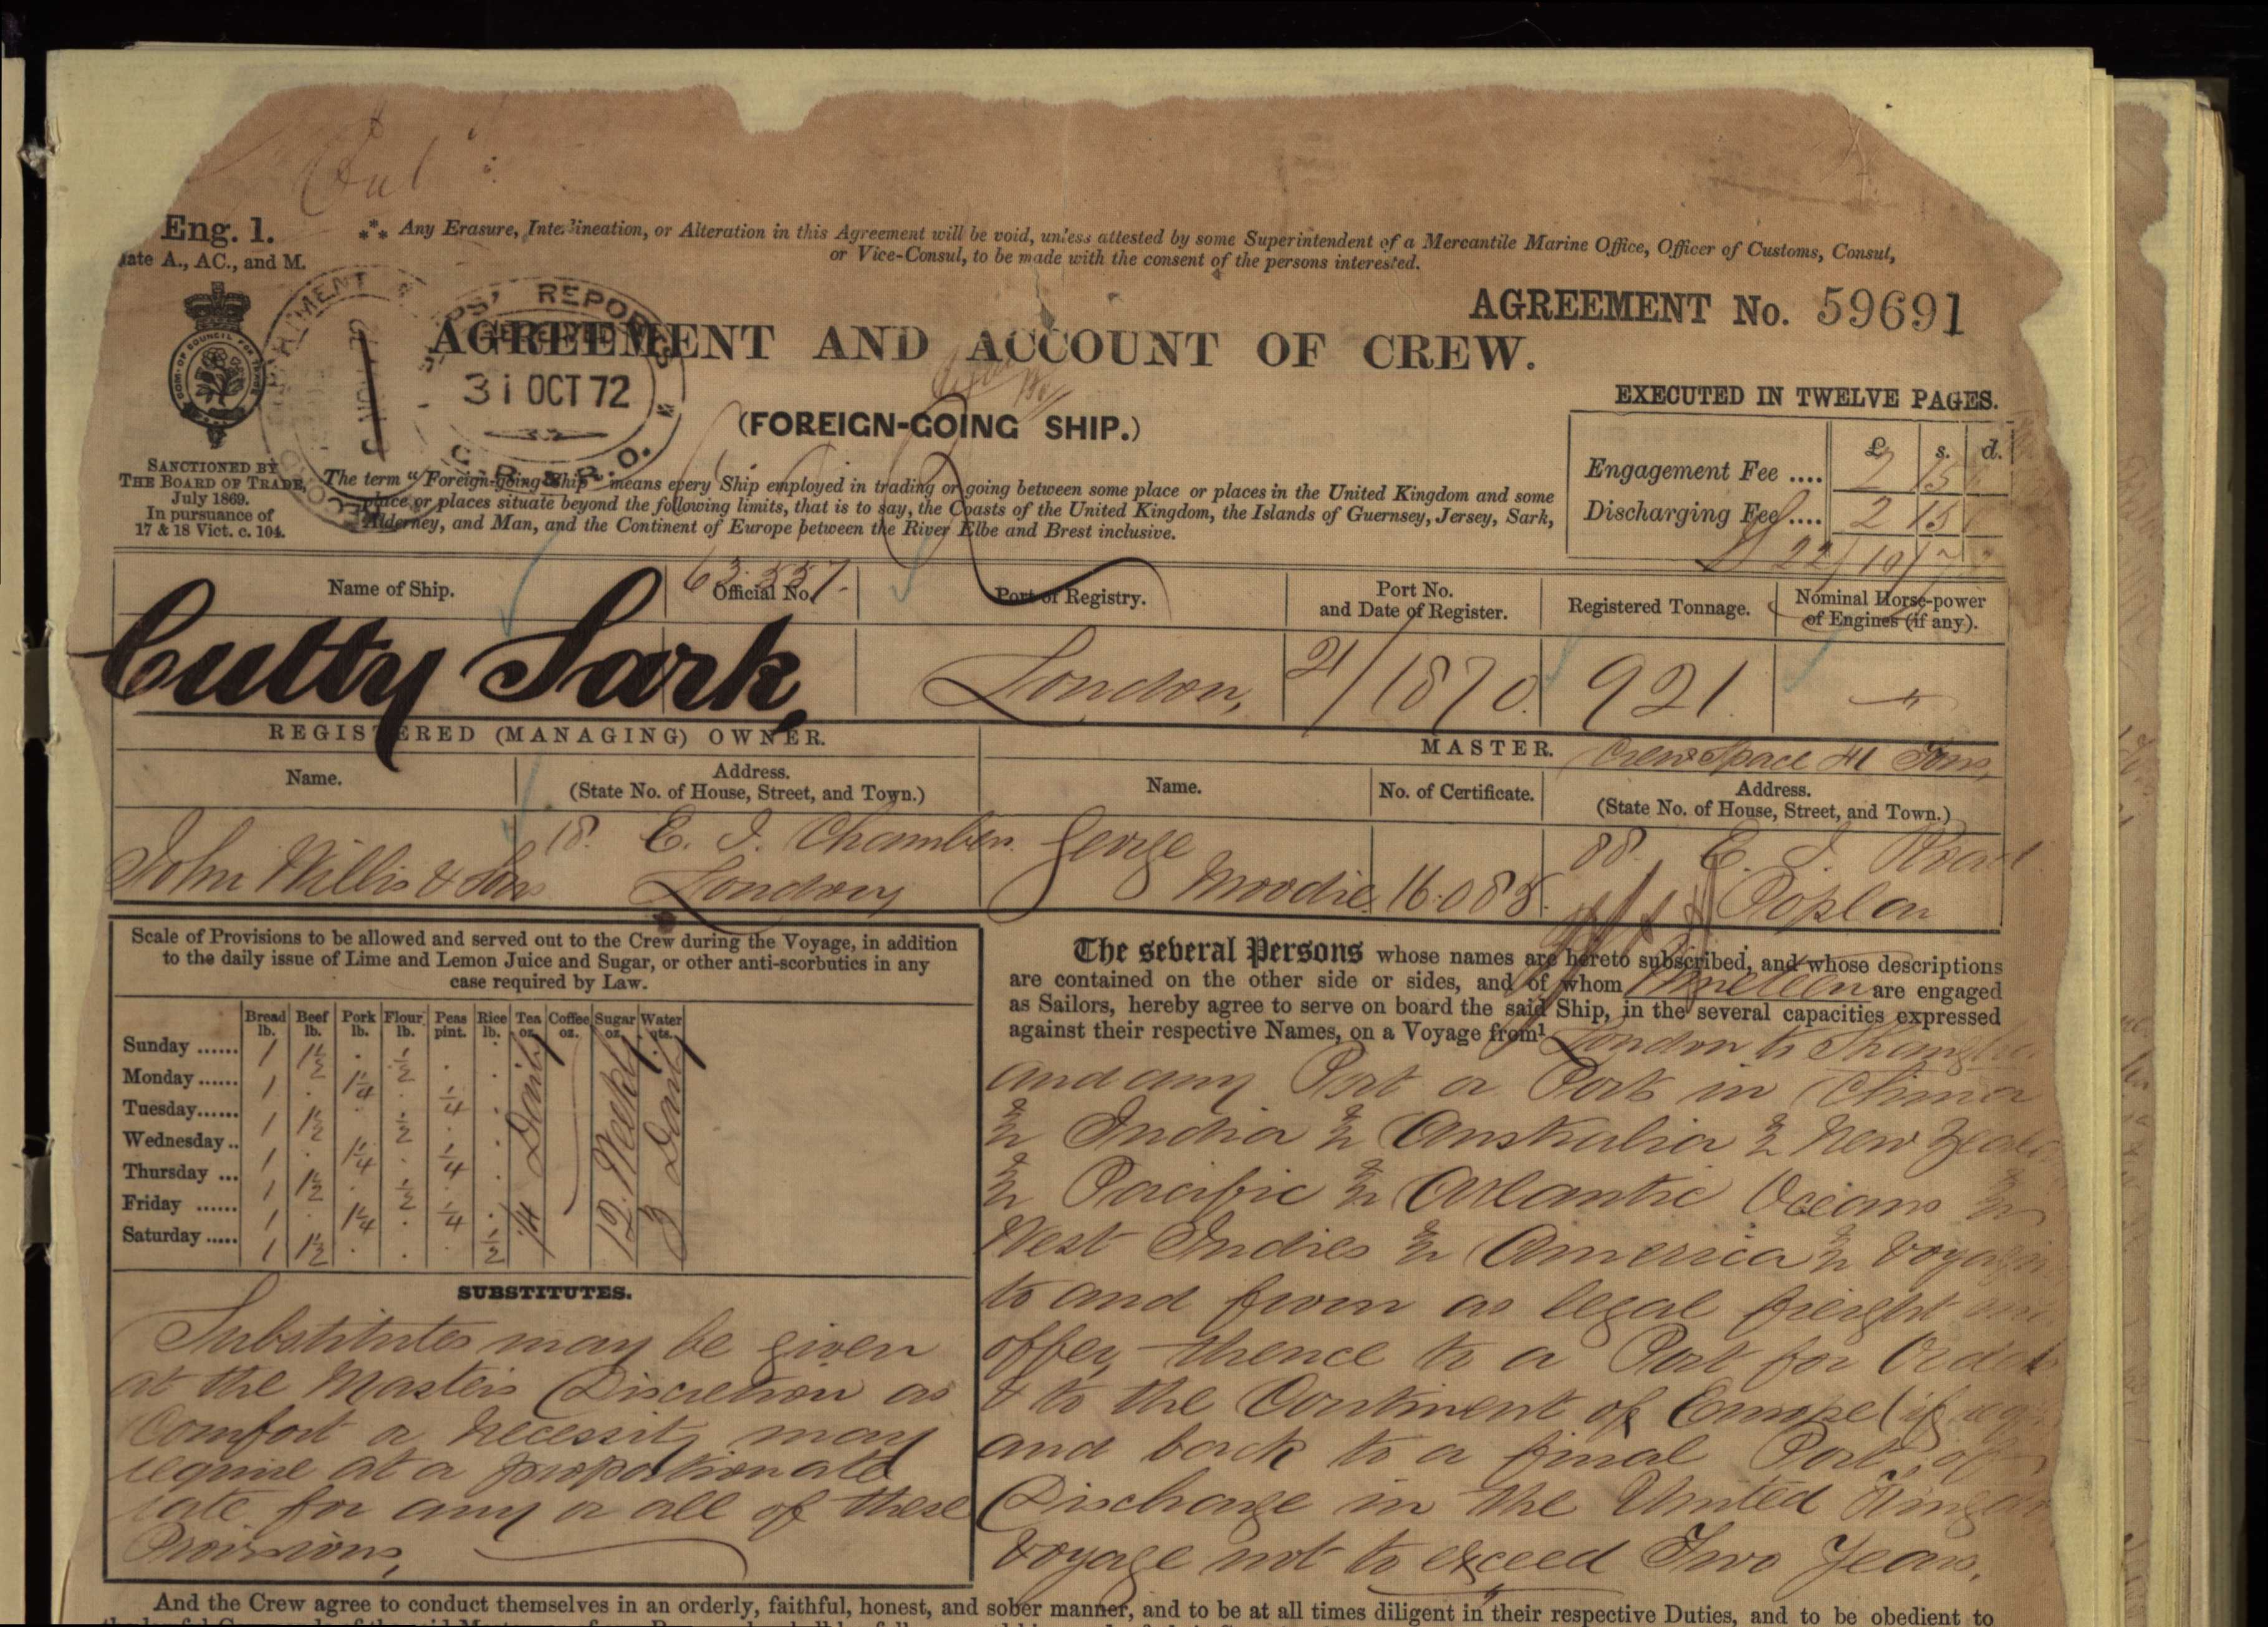 Eng. 1.
ate A., AC., and M.
Any Erasure, Interlineation, or Alteration in this Agreement will be void, unless attested by some Superintendent of a Mercantile Marine Office, Officer of Customs, Consul,
or Vice-Consul, to be made with the consent of the persons interested.
AGREEMENT No. 59691
AGREEMENT AND ACCOUNT OF CREW.
REPO
31 OCT 72
(FOREIGN-GOING SHIP.)
EXECUTED IN TWELVE PAGES.
£ s. d.
Engagement Fee .... 2 15
Discharging Fee .... 2 15
SANCTIONED BY
THE BOARD OF TRADE,
July 1869.
In pursuance of
17 & 18 Vict. c. 104.
The term "Foreign-going Ship" means every Ship employed in trading or going between some place or places in the United Kingdom and some
place or places situate beyond the following limits, that is to say, the Coasts of the United Kingdom, the Islands of Guernsey, Jersey, Sark,
Alderney, and Man, and the Continent of Europe between the River Elbe and Brest inclusive.
Name of Ship. Official No. Port of Registry. Port No. and Date of Register. Registered Tonnage. Nominal Horse-power of Engines (if any).
63.557.
Cutty Sark, London, 21/1870. 921.
REGISTERED (MANAGING) OWNER. MASTER. Crew Space 41 Tons,
Name. Address. (State No. of House, Street, and Town.) Name. No. of Certificate. Address. (State No. of House, Street, and Town.)
18. E. I. Chambers. George 88. E. I. Road
John Willis & Sons London Moodie 16.085. Poplar
Scale of Provisions to be allowed and served out to the Crew during the Voyage, in addition
to the daily issue of Lime and Lemon Juice and Sugar, or other anti-scorbutics in any
case required by Law.
Bread lb. Beef lb. Pork lb. Flour lb. Peas pint. Rice lb. Tea oz. Coffee oz. Sugar oz. Water qts.
Sunday ...... 1 1½ . ½ . .
Monday ...... 1 . 1¼ . ¼ .
Tuesday...... 1 1½ . ½ . .
Wednesday .. 1 . 1¼ . ¼ .
Thursday ... 1 1½ . ½ . .
Friday ...... 1 . 1¼ . ¼ .
Saturday ..... 1 1½ . . . ½
¼ Daily
12. Weekly.
3 Daily
SUBSTITUTES.
Substitutes may be given
at the Masters Discretion as
Comfort or Necessity may
require at a proportionate
rate for any or all of these
Provisions,
The several Persons whose names are hereto subscribed, and whose descriptions
are contained on the other side or sides, and of whom Nineteen are engaged
as Sailors, hereby agree to serve on board the said Ship, in the several capacities expressed
against their respective Names, on a Voyage from¹ London to Shanghai
and any Port or Ports in China
&/or India &/or Australia &/or New Zealand
&/or Pacific &/or Atlantic Oceans &/or
West Indies &/or America &/or Voyaging
to and from as legal freight
offer, thence to a Port for Orders
& to the Continent of Europe (if
and back to a final Port of
Discharge in the United Kingdom
Voyage not to exceed Two Years.
And the Crew agree to conduct themselves in an orderly, faithful, honest, and sober manner, and to be at all times diligent in their respective Duties, and to be obedient to